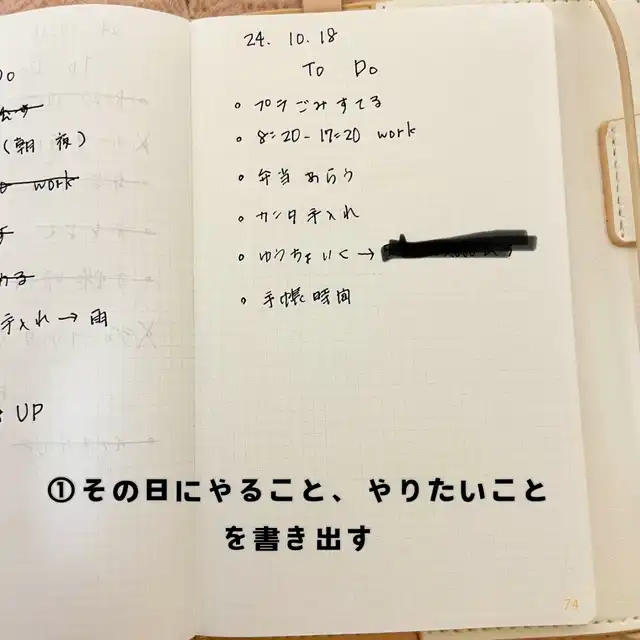 Do
(朝 夜)
work
手入れ→雨
UP
24. 10. 18
To Do
• プラごみすてる
• 8:20-17:20 work
• 弁当あらう
• カンタ手入れ
• ゆうちょいく→
• 手帳時間
①その日にやること、やりたいこと
を書き出す
74